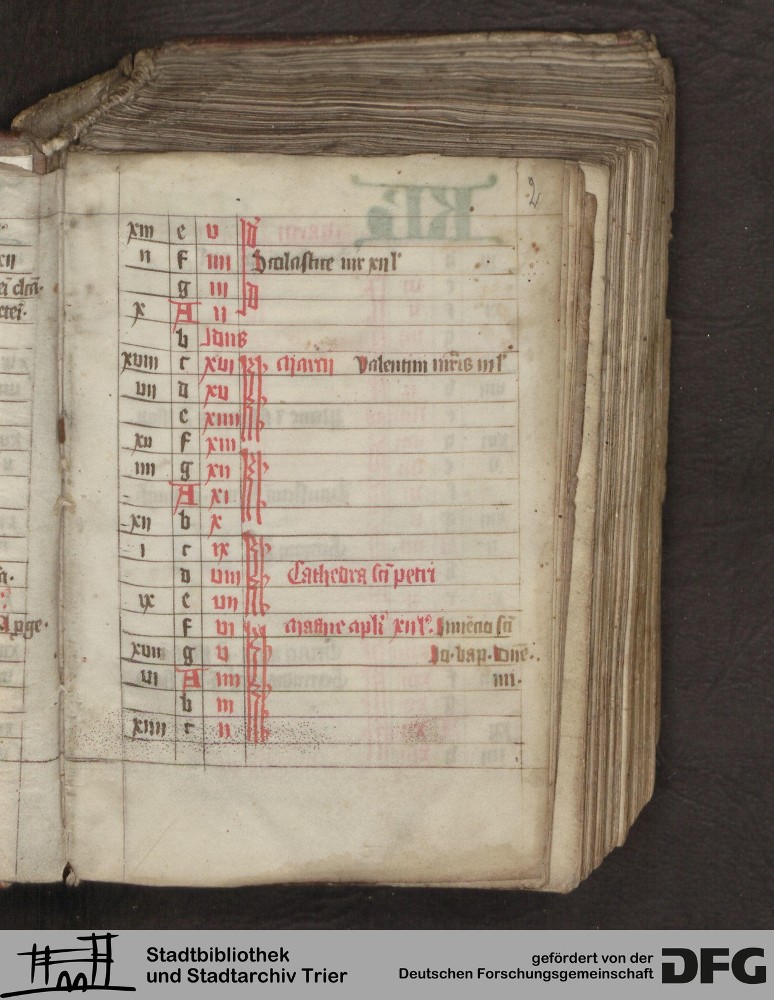 2
xiii e v Id
ii f iiii Scolastice uir xii l
g iii
x A ii Id
b Idus
xviii c xvi kl Marcii Valentini mris iii l
vii d xv
e xiiii
xv f xiii
iiii g xii kl
A xi
xii b x
i c ix kl
d viii Cathedra sci petri
ix e vii
f vi kl Mathie apli xii l. Inuencio sci
xvii g v Jo. bap. Due.
vi A iiii iii.
b iii
xiiii c ii
Stadtbibliothek
und Stadtarchiv Trier
gefördert von der
Deutschen Forschungsgemeinschaft
DFG